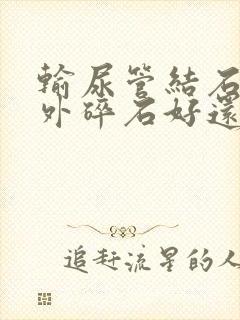 輸尿管結石
外碎石好還
追赶流星的人